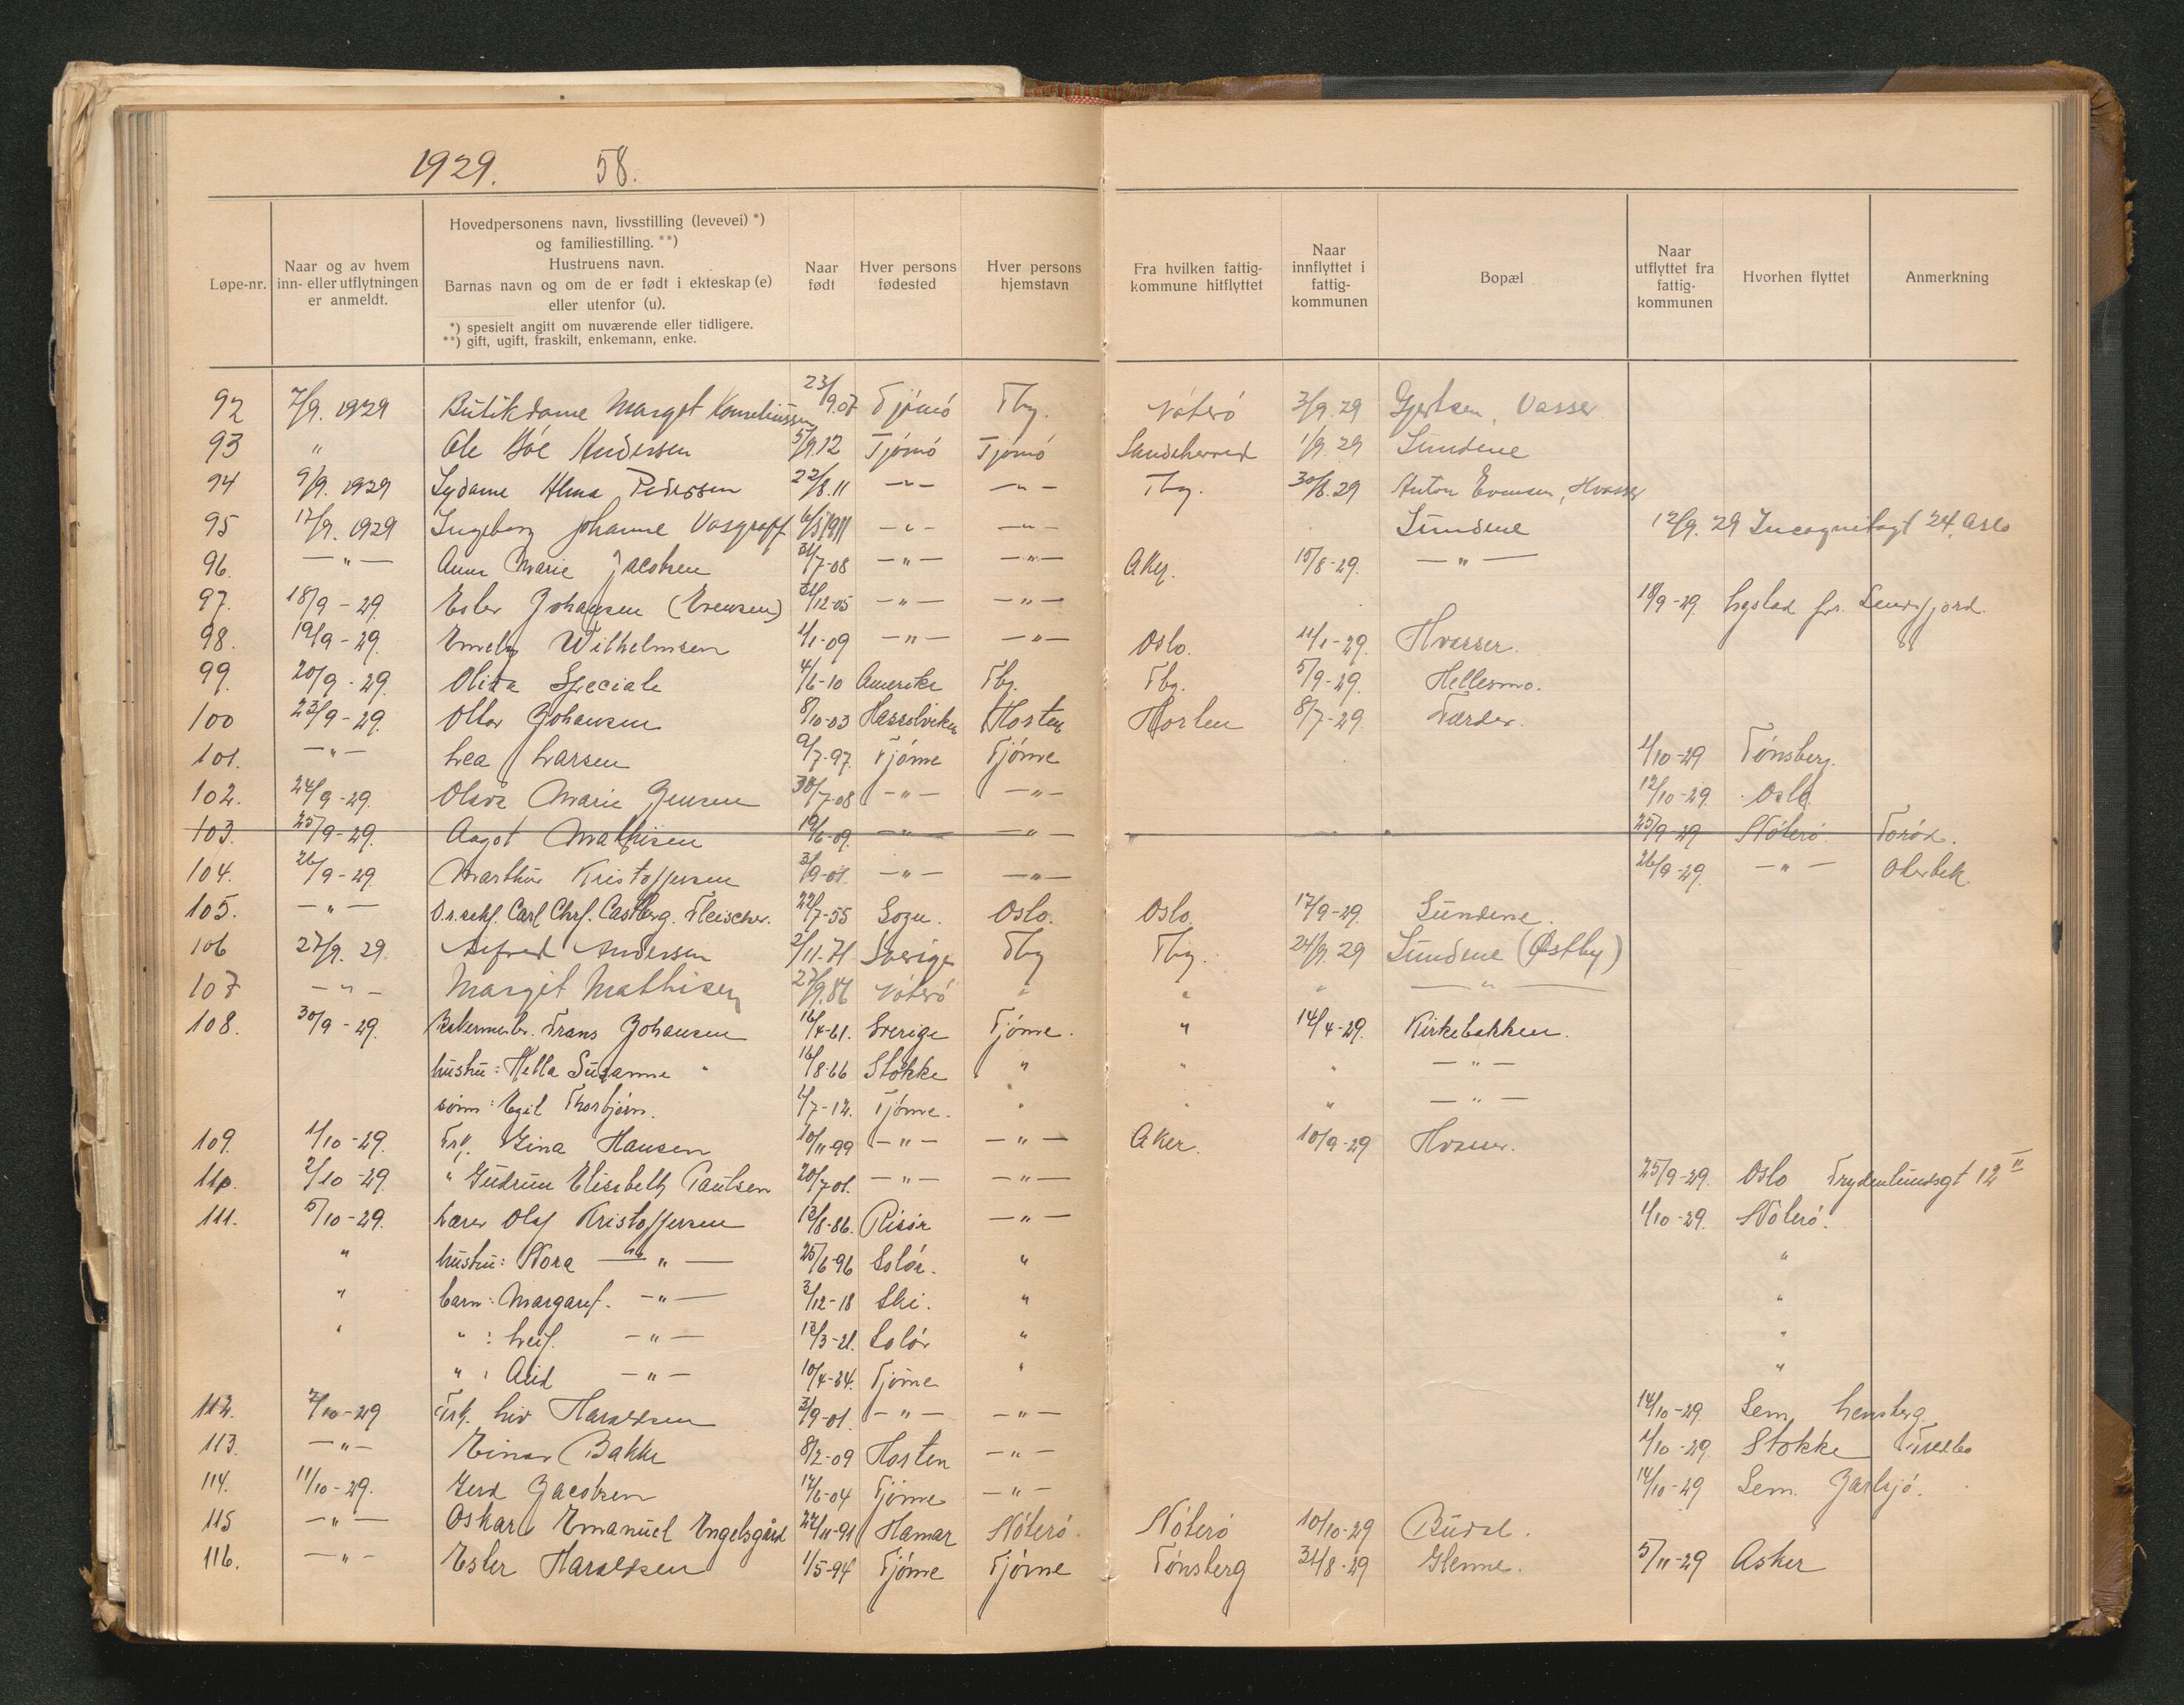 1929. 58.
Løpe-nr. | Naar og av hvem inn- eller utflytningen er anmeldt. | Hovedpersonens navn, livsstilling (levevei) *) og familiestilling. **) Hustruens navn. Barnas navn og om de er født i ekteskap (e) eller utenfor (u). *) spesielt angitt om nuværende eller tidligere. **) gift, ugift, fraskilt, enkemann, enke. | Naar født | Hver persons fødested | Hver persons hjemstavn | Fra hvilken fattig-kommune hitflyttet | Naar innflyttet i fattig-kommunen | Bopæl | Naar utflyttet fra fattig-kommunen | Hvorhen flyttet | Anmerkning
92 7/9. 1929 Butikdame Margot Korneliussen 23/9.07 Tjømø Tbg. Nøterø 3/9.29 Gjertsen, Vasser
93 " Ole Bøe Andersen 5/9.12 Tjømø Tjømø Sandeherred 1/9.29 Sundene
94 9/9. 1929 Sydame Alma Pedersen 22/8.11 —"— —"— Tbg. 30/8.29 Anton Evensen, Hvasser
95 17/9. 1929 Ingeborg Johanne Vosgraff 6/5 1911 —"— —"— Sundene 12/9.29 Incognitogt 24, Oslo
96. —"— Anna Marie Jacobsen 31/7-08 —"— —"— Aker. 15/8-29. —"—
97. 18/9-29. Ester Johansen (Evensen) 31/12-05 —"— —"— 18/9-29. Lystad pr. Sandefjord.
98. 19/9-29. Emely Wilhelmsen 1/1-09 —"— —"— Oslo. 11/1-29. Hvasser.
99. 20/9-29. Olita Speciale 4/6-10 Amerika Tbg. Tbg. 5/9-29. Hellesmo.
100 23/9-29. Ottar Johansen 8/10-03 Hasselviken Horten Horten 8/7-29. Færder.
101. —"— Lea Larsen 9/7-97. Tjøme Tjøme 1/10-29 Tønsberg.
102. 24/9-29. Olava Marie Jensen 30/7-08 —"— —"— 12/10-29. Oslo
103. 25/9-29. Aagot Mathisen 19/6-09. —"— —"— 25/9-29 Nøterø. Torød.
104. 26/9-29. Marthin Kristoffersen 3/9-01. —"— —"— 26/9-29. —"— Oterbek.
105. —"— O.r.sakf. Carl Chrf. Castberg. Fleischer. 22/7-55 Sogn. Oslo. Oslo. 17/9-29. Sundene.
106 27/9.29. Alfred Andersen 2/11-71 Sverige Tbg Tbg. 24/9.29 Sundene (Østby)
107 —"— Margit Mathisen 27/9.86 Nøterø " " " —"—
108. 30/9-29. Frans Johansen 16/4-61. Sverige Tjøme. " 14/4-29. Kirkebakken.
hustru: Hella Susanne " 16/8-66 Stokke " " " —"—
sønn: Egil Thorbjørn. 6/7-12. Tjøme. " " " —"—
109. 1/10-29. Frk. Gina Hansen 10/11-99 —"— —"— Aker. 10/9-29 Hvasser.
110. 2/10-29. " Gudrun Elisabeth Paulsen 20/7-01. —"— —"— 25/9-29. Oslo Frydenlundsgt 12 II
111. 5/10-29. Lærer Olaf Kristoffersen 13/8-86. Risør —"— 1/10-29. Nøterø.
" hustru: Nora —"— 25/6-96 Solør. " "
" barn: Margaret. —"— 3/12-18 Ski. " "
" " : Leif. —"— 13/3-21. Solør " "
" : Aud —"— 10/4-24. Tjøme " "
112. 7/10-29 Frk. Liv Haraldsen 3/9-01. —"— —"— 14/10-29. Sem. Lensberg.
113. —"— Einar Bakke 8/2-09 Horten —"— 1/10-29. Stokke
114. 11/10-29. Gerd Jacobsen 14/6-04 Tjøme —"— 14/10-29 Sem. Jarlsø.
115 —"— Oskar Emanuel Engelsgård 24/11-91 Hamar Nøterø. Nøterø 10/10-29 Budal.
116. —"— Ester Haraldsen 1/5-94 Tjøme Tjøme Tønsberg 31/8-29 Glenne. 5/11-29 Asker